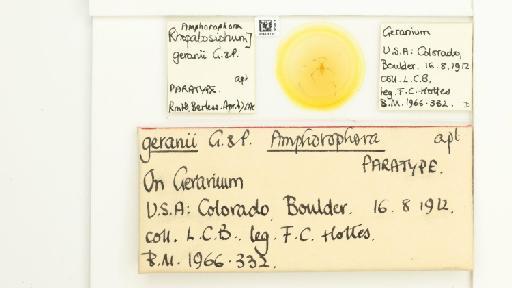 Amphorophora
[Rhopalosiphum]
geranii G.&P.
apt
PARATYPE.
Geranium
U.S.A: Colorado,
Boulder. 16.8.1912
coll. L.C.B.
leg. F.C. Hottes
B.M. 1966-332.
geranii G.&P. Amphorophora apt
PARATYPE.
On Geranium
U.S.A: Colorado, Boulder. 16.8.1912.
coll. L.C.B. leg. F.C. Hottes.
B.M. 1966-332.